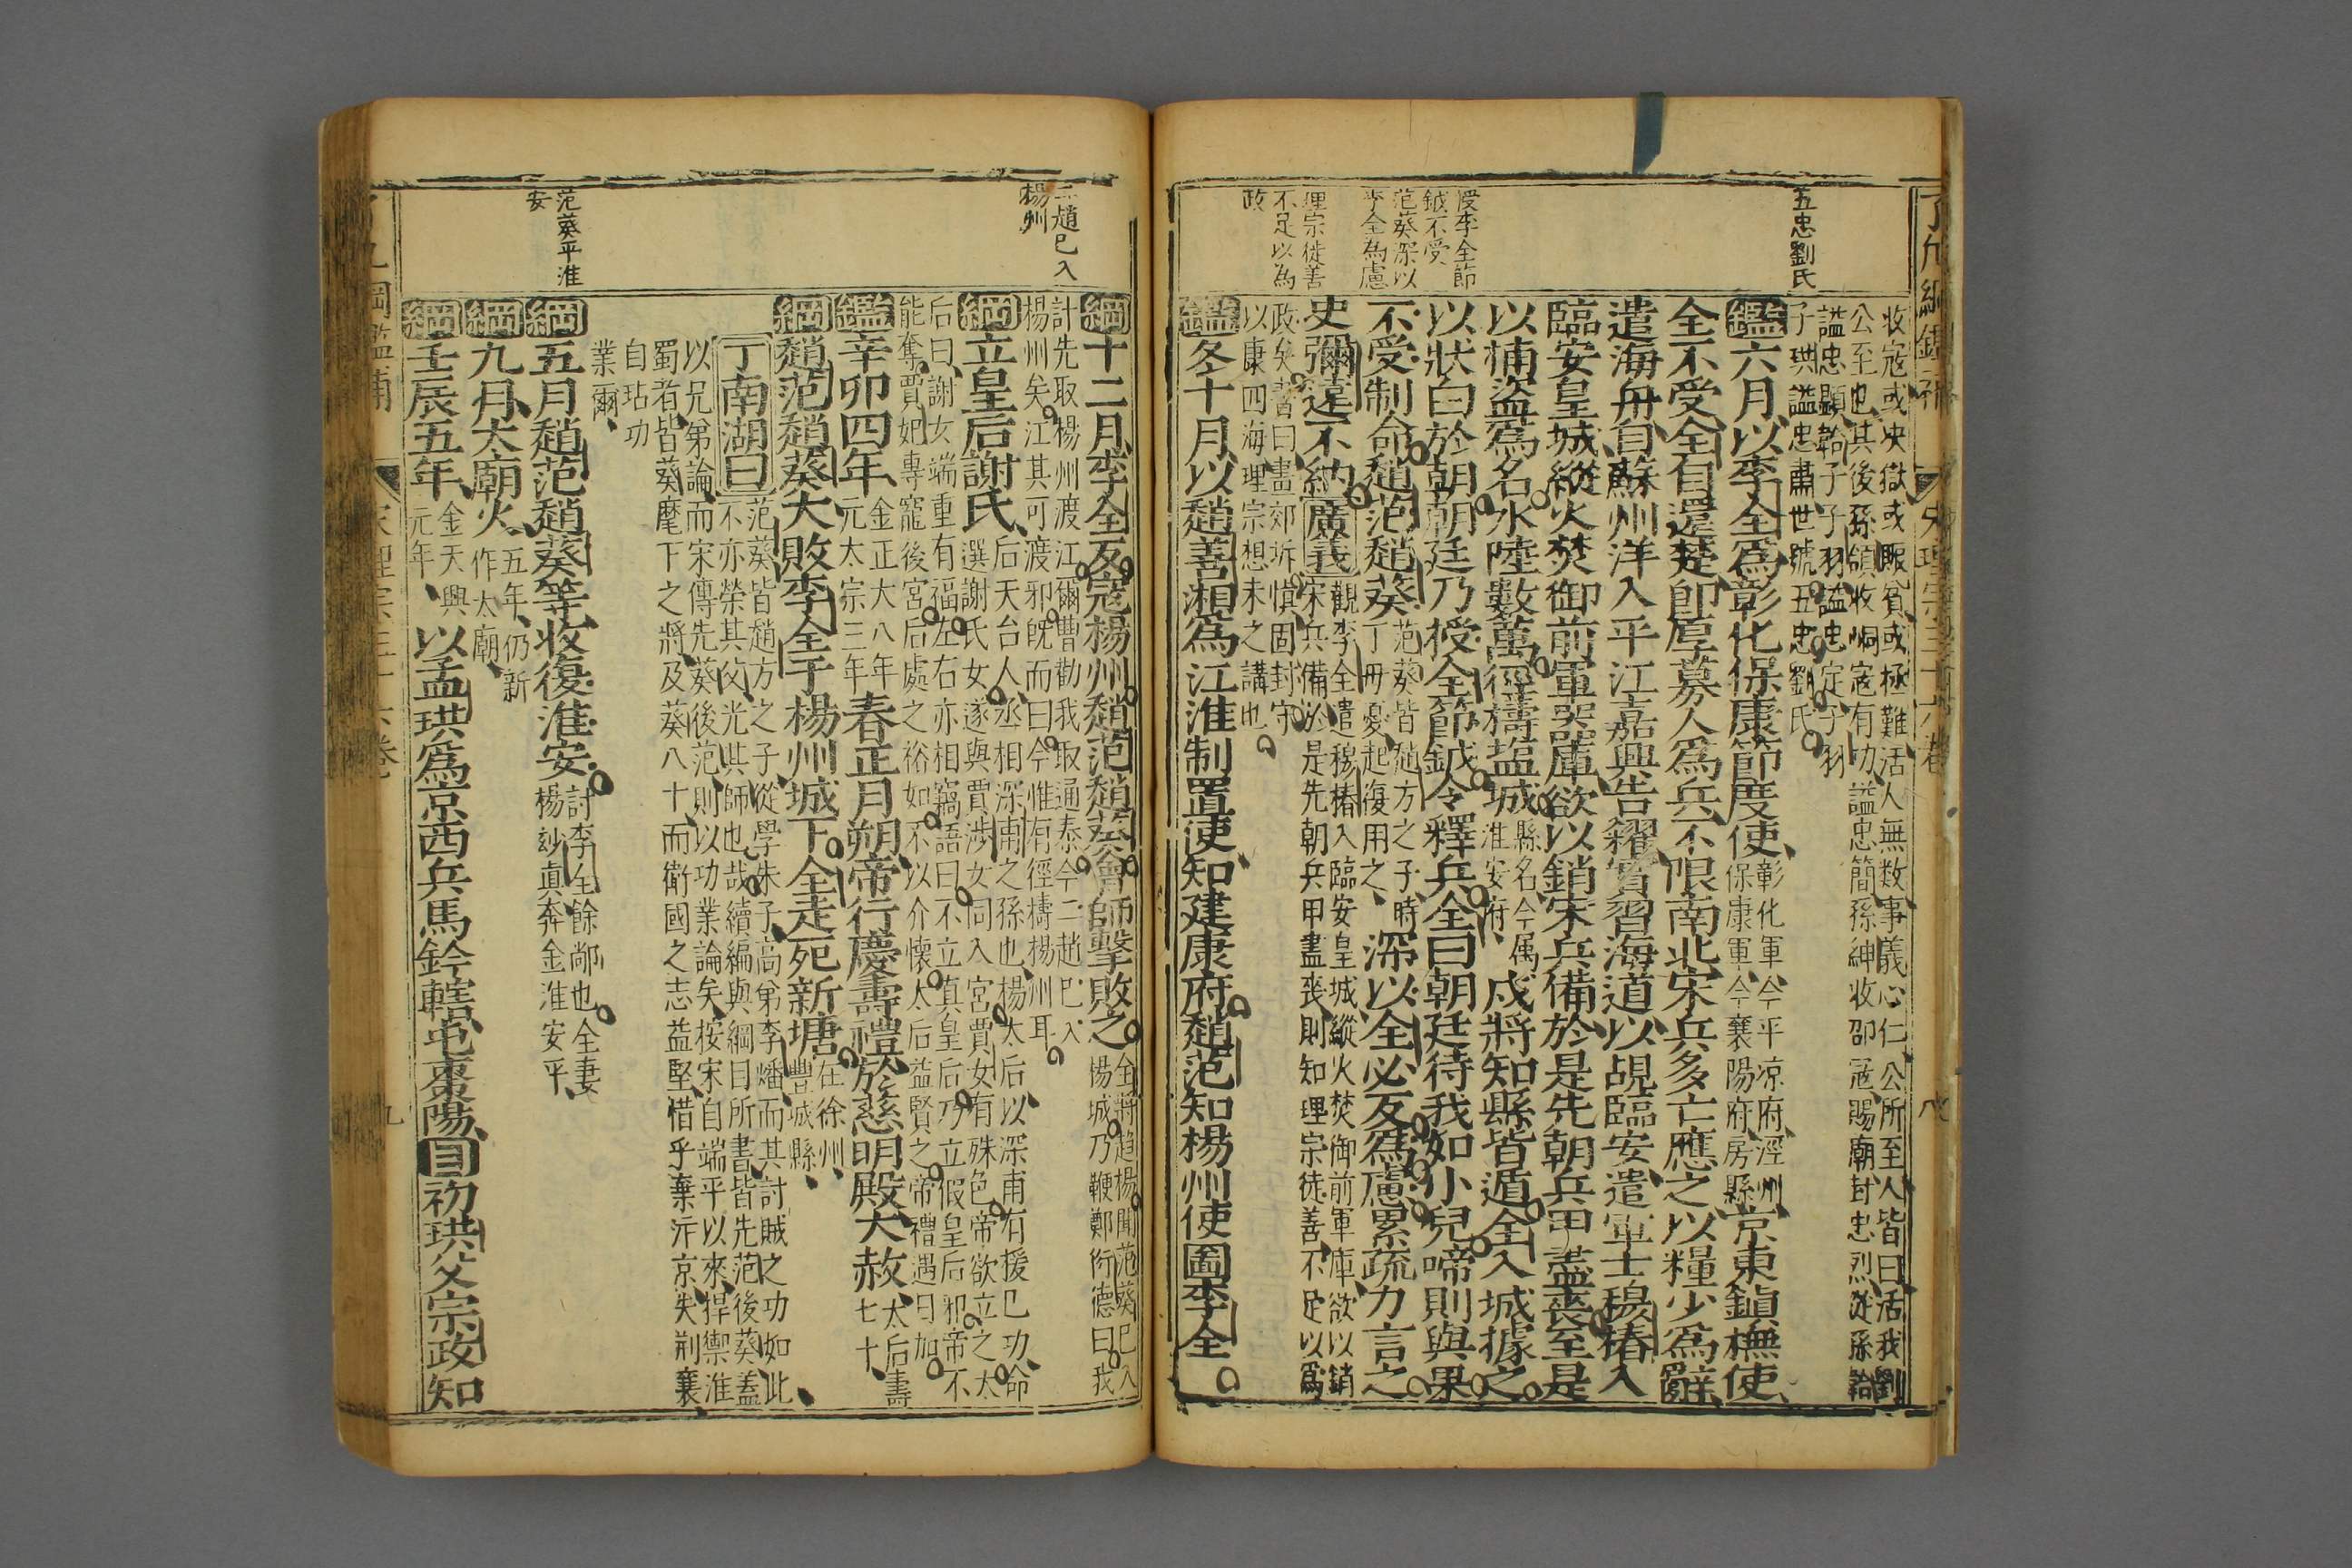 五忠劉氏
授李全節
鉞不受
范葵深以
李全為慮
理宗徒善
不足以為
政
收寇或決獄或賑貧或極難活人無数事義心仁公所至人皆曰活我劉
公至也其後孫領收峒寇有功謚忠簡孫紳收邵寇賜廟封忠烈從孫韐
謚忠顯韐子子羽謚忠定子羽
子珙謚忠肅世號五忠劉氏
鑑六月以李全爲彰化保康節度使
彰化軍今平凉府涇州
保康軍今襄陽府房縣
京東鎮撫使
全不受全自還楚即厚募人爲兵不限南北宋兵多亡應之以糧少爲辭
遣海舟自蘇州洋入平江嘉興告糴實習海道以覘臨安遣軍士穆椿入
臨安皇城縱火焚御前軍器庫欲以銷宋兵備於是先朝兵甲盡喪至是
以捕盜爲名水陸數萬徑擣塩城
縣名今属
淮安府
戍將知縣皆遁全入城據之
以狀白於朝朝廷乃授全節鉞令釋兵全曰朝廷待我如小兒啼則與果
不受制命趙范趙葵
范葵皆趙方之子時
丁母憂起復用之
深以全必反爲慮累疏力言之
史彌遠不納廣義
觀李全遣穆椿入臨安皇城縱火焚御前軍庫欲以銷
宋兵備於是先朝兵甲盡喪則知理宗徒善不足以爲
政矣書曰畫郊圻慎固封守
以康四海理宗想未之講也
鑑冬十月以趙善湘爲江淮制置使知建康府趙范知楊州使圖李全
二趙已入
楊州
范葵平淮
安
綱十二月李全反寇楊州趙范趙葵會師擊敗之
全將趨楊聞范葵已入
楊城乃鞭鄭衍德曰我
計先取楊州渡江爾曹勸我取通泰今二趙已入
楊州矣江其可渡邪旣而曰今惟有徑擣楊州耳
綱立皇后謝氏
后天台人丞相深甫之孫也楊太后以深甫有援已功命
選謝氏女遂與賈涉女同入宮賈女有殊色帝欲立之太
后曰謝女端重有福左右亦相竊語曰不立真皇后乃立假皇后邪帝不
能奪賈妃專寵後宮后處之裕如不以介懷太后益賢之帝禮遇日加
鑑辛卯四年
金正大八年
元太宗三年
春正月朔帝行慶壽禮於慈明殿大赦
太后壽
七十
綱趙范趙葵大敗李全于楊州城下全走死新塘
在徐州
豐城縣
丁南湖曰
范葵皆趙方之子從學朱子高弟李燔而其討賊之功如此
不亦榮其父光其師也哉續編與綱目所書皆先范後葵蓋
以兄弟論而宋傳先葵後范則以功業論矣按宋自端平以來捍禦淮
蜀者皆葵麾下之將及葵八十而衛國之志益堅惜乎棄汴京失荆襄
自玷功
業爾
綱五月趙范趙葵等收復淮安
討李全餘鄰也全妻
楊玅眞奔金淮安平
綱九月太廟火
五年仍新
作太廟
綱壬辰五年
金天興
元年
以孟珙爲京西兵馬鈐轄屯棗陽目初珙父宗政知